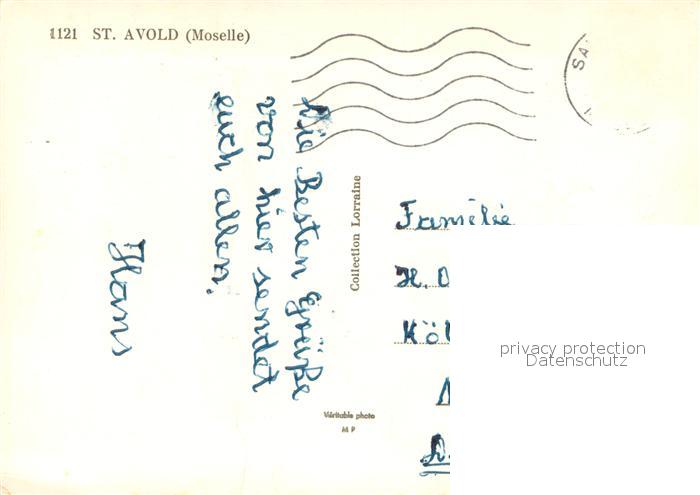 1121 ST. AVOLD (Moselle)
SA
Die Besten Grüße
von hier sendet
euch allen.
Hans
Collection Lorraine
Véritable photo
M P
Familie
H. O
Köl
privacy protection
Datenschutz